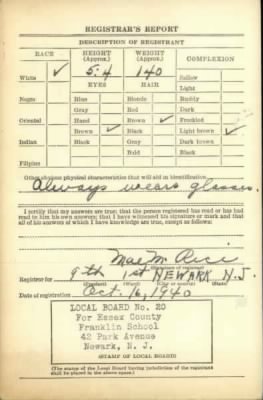 REGISTRAR'S REPORT
DESCRIPTION OF REGISTRANT
RACE HEIGHT (Approx.) WEIGHT (Approx.) COMPLEXION
White ✓ 5:4 140 Sallow
EYES HAIR Light
Negro Blue Blonde Ruddy
Gray Red Dark
Oriental Hazel Brown ✓ Freckled
Brown ✓ Black Light brown ✓
Indian Black Gray Dark brown
Bald Black
Filipino
Other obvious physical characteristics that will aid in identification
Always wears glasses.
I certify that my answers are true; that the person registered has read or has had
read to him his own answers; that I have witnessed his signature or mark and that
all of his answers of which I have knowledge are true, except as follows:
Mae M. Rice
(Signature of registrar)
Registrar for 9th 1st NEWARK N.J.
(Precinct) (Ward) (City or county) (State)
Date of registration Oct. 16, 1940
LOCAL BOARD No. 20
For Essex County
Franklin School
42 Park Avenue
Newark, N. J.
(STAMP OF LOCAL BOARD)
(The stamp of the Local Board having jurisdiction of the registrant
shall be placed in the above space.)